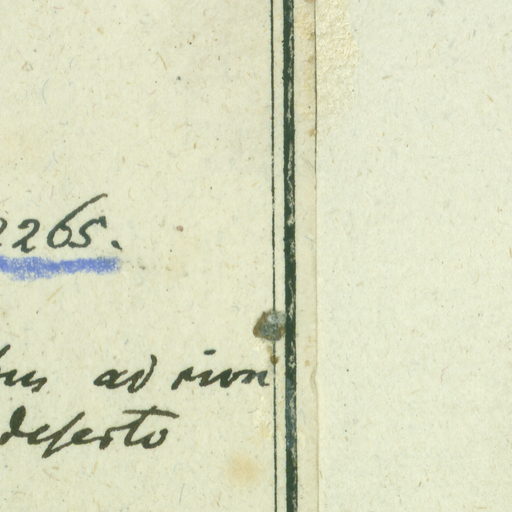 2265.
bus ad rivm
deserto